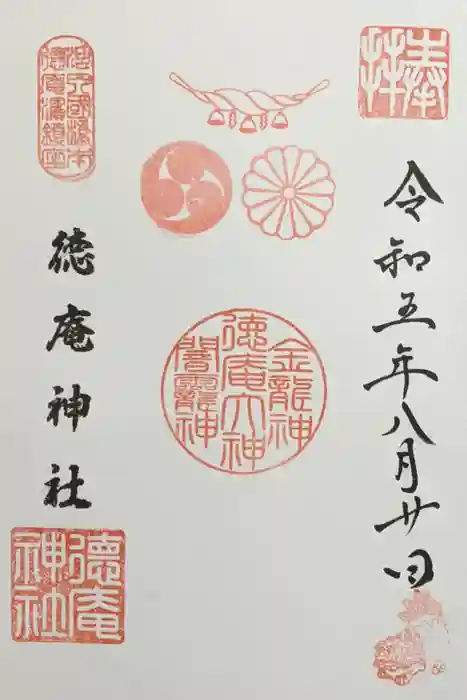 奉拝
令和五年八月廿日
金龍神
徳庵大神
闇龗神
徳庵神社
德庵
神社